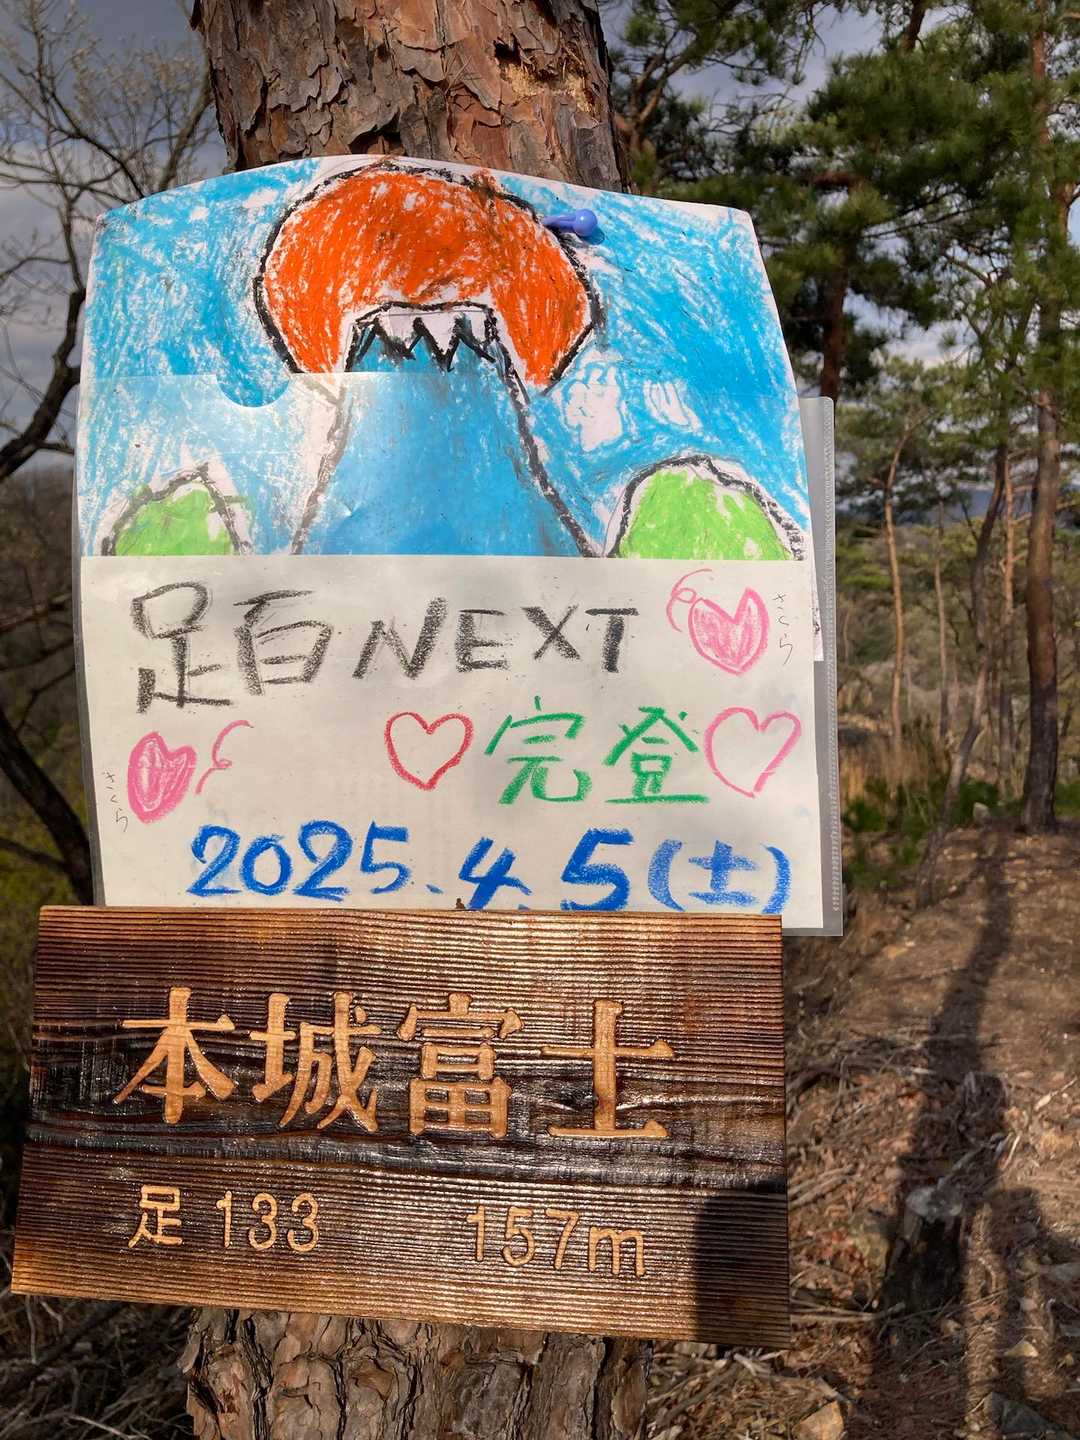 足百NEXT
さくら
完登
さくら
2025.4.5(土)
本城富士
足133 157m